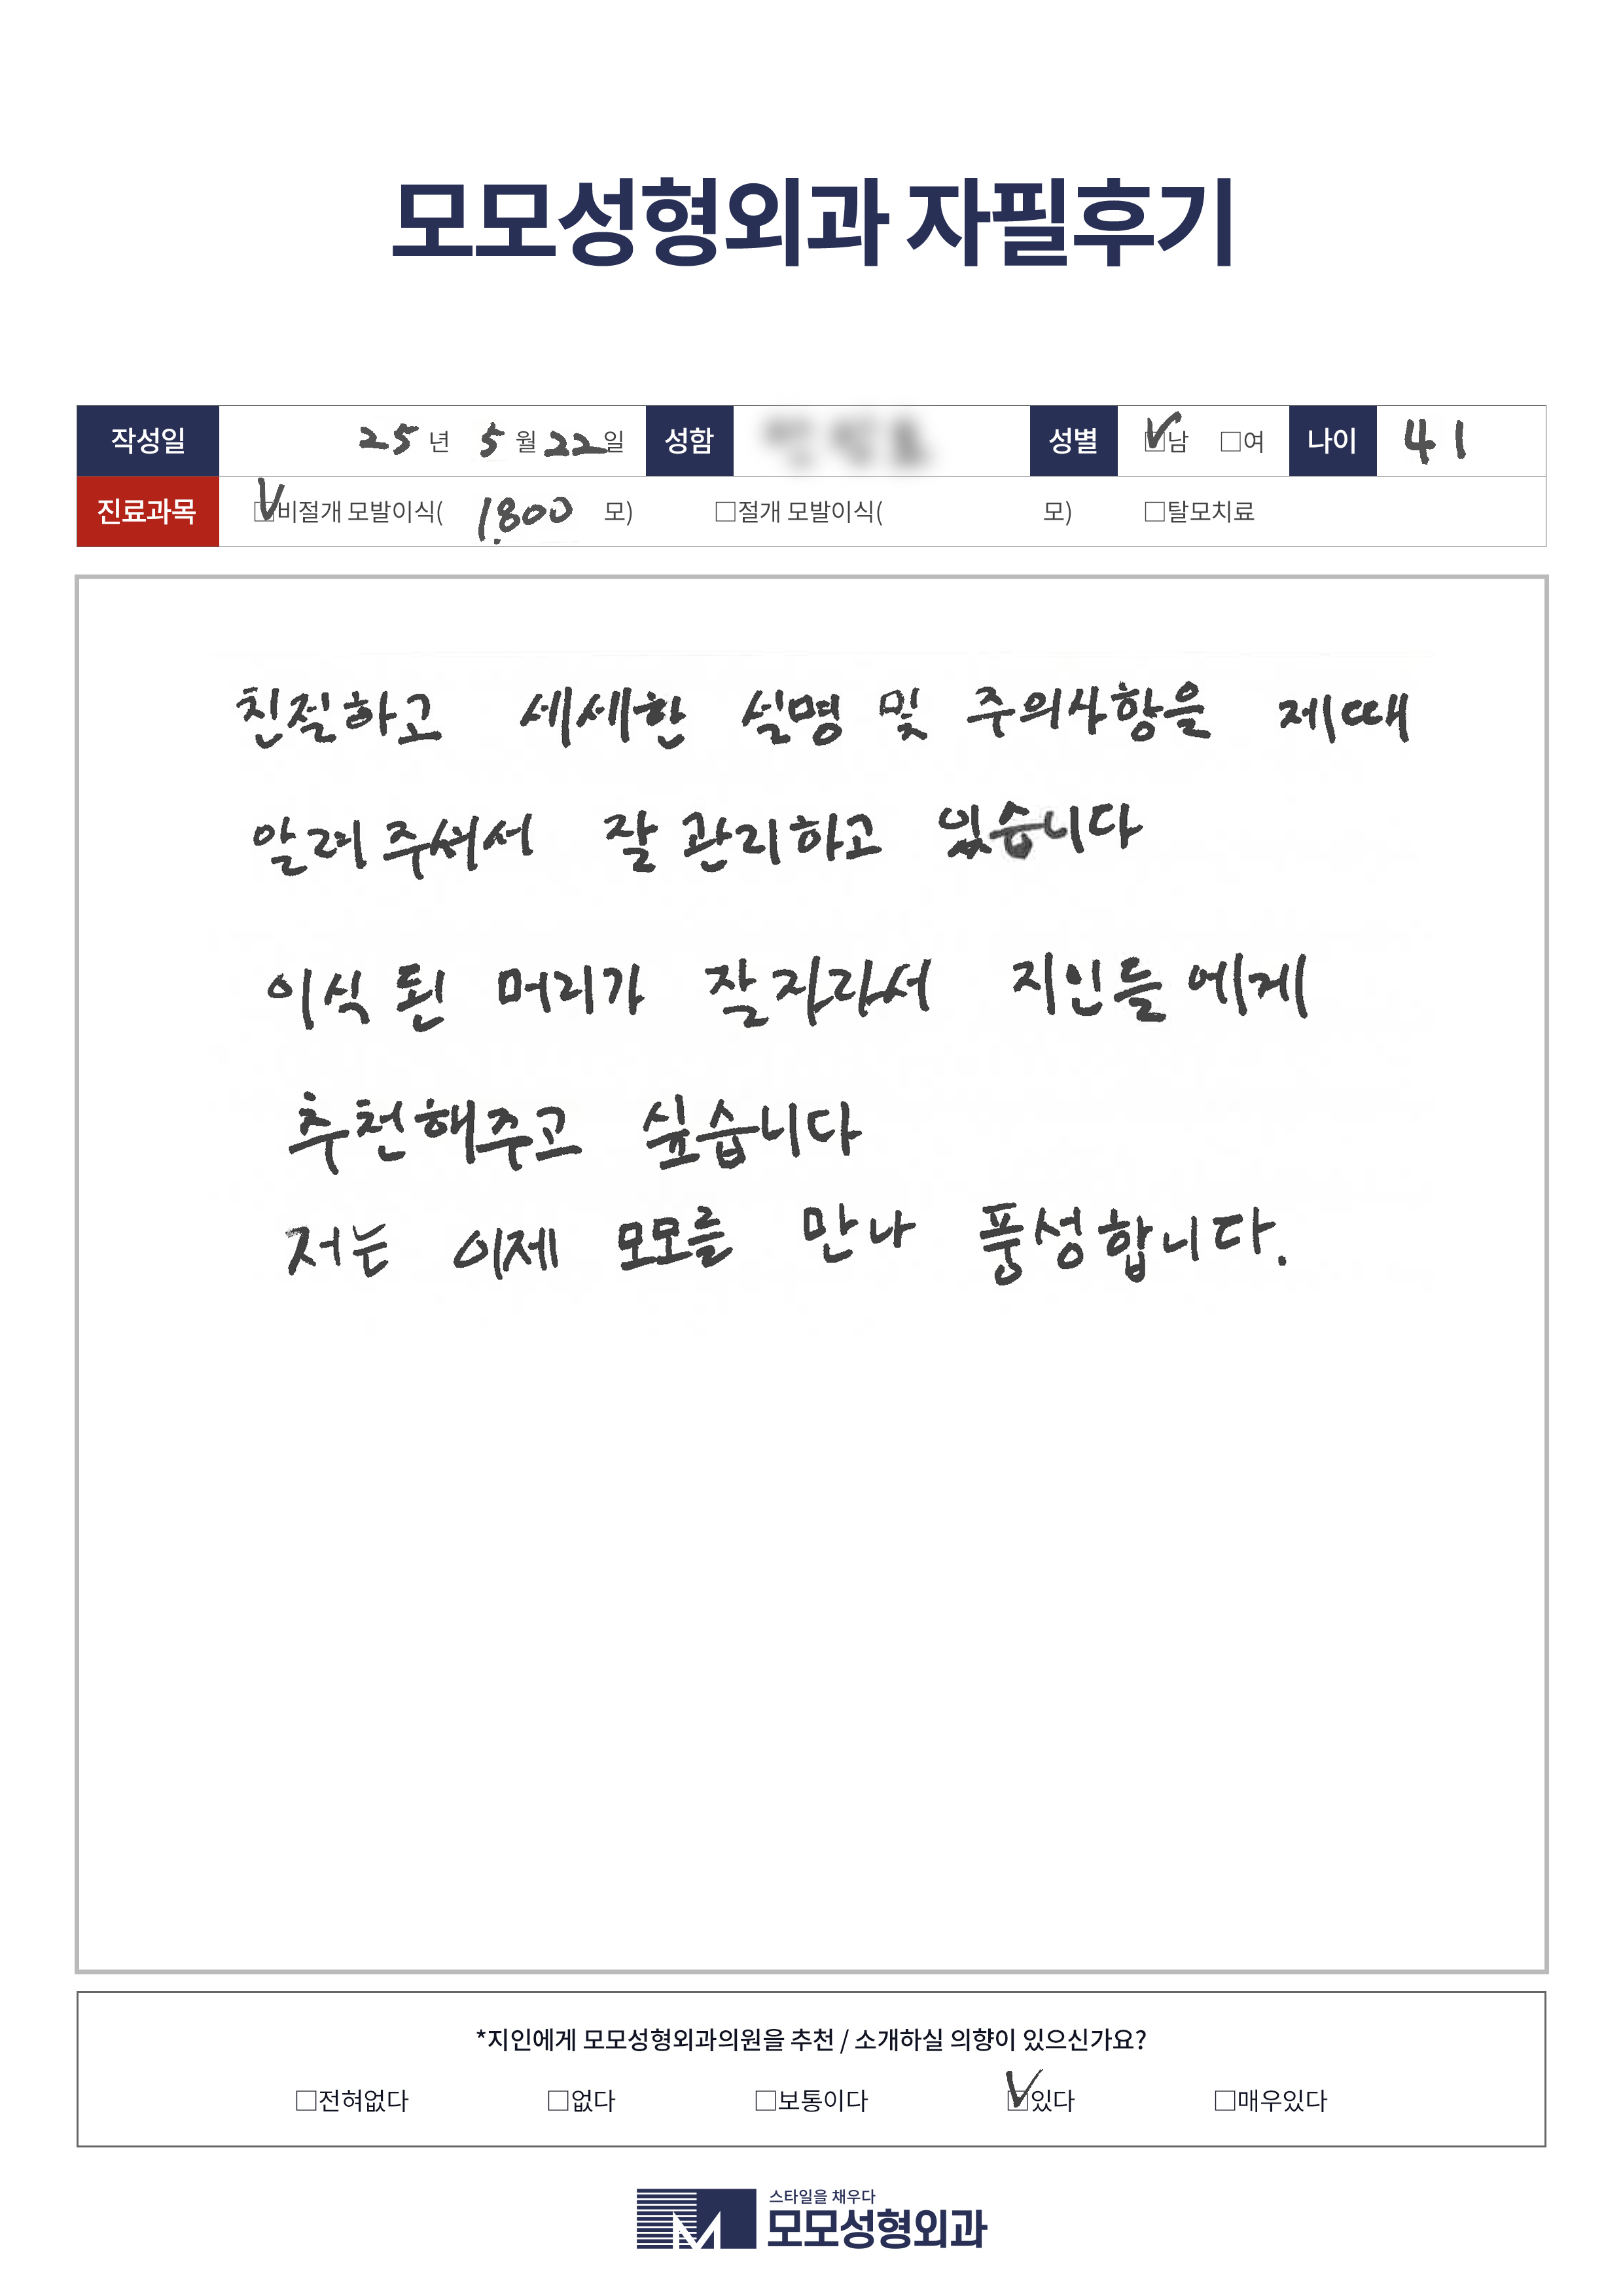 모모성형외과 자필후기
작성일 25 년 5 월 22 일 성함 성별 ☑남 □여 나이 41
진료과목 ☑비절개 모발이식( 1,800 모) □절개 모발이식( 모) □탈모치료
친절하고 세세한 설명 및 주의사항을 제때
알려주셔서 잘 관리하고 있습니다
이식된 머리가 잘 자라서 지인들에게
추천해주고 싶습니다
저는 이제 모모를 만나 풍성합니다.
*지인에게 모모성형외과의원을 추천 / 소개하실 의향이 있으신가요?
□전혀없다 □없다 □보통이다 ☑있다 □매우있다
스타일을 채우다
모모성형외과